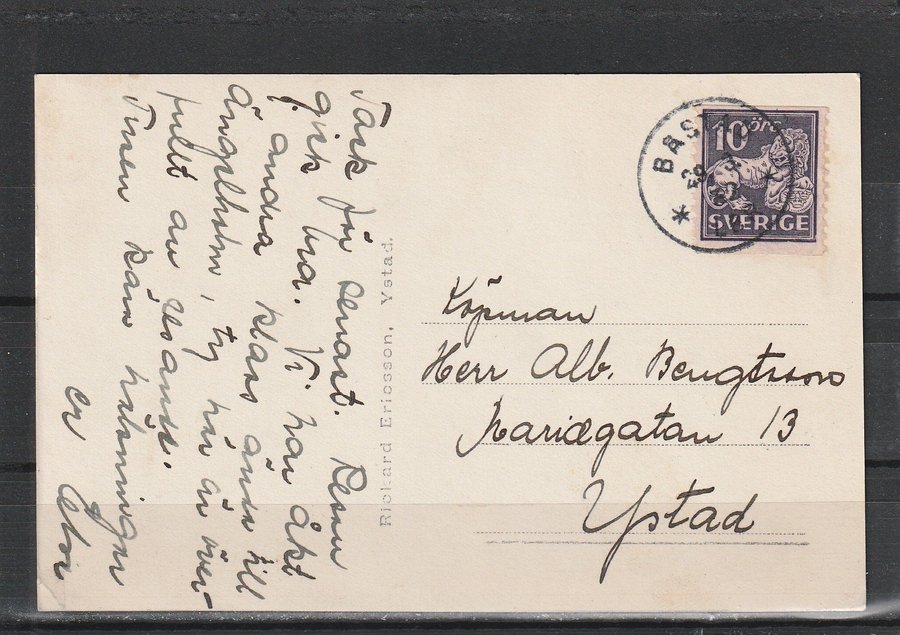 Tack för senast. Resan
gick bra. Vi har åkt
i andra klass ända till
Ängelholm, ty här är över-
fullt av resande.
Tusen kära hälsningar
er
Rickard Ericsson, Ystad.
BÅSTAD
10 ÖRE
SVERIGE
Köpman
Herr Alb. Bengtsson
Mariægatan 13
Ystad